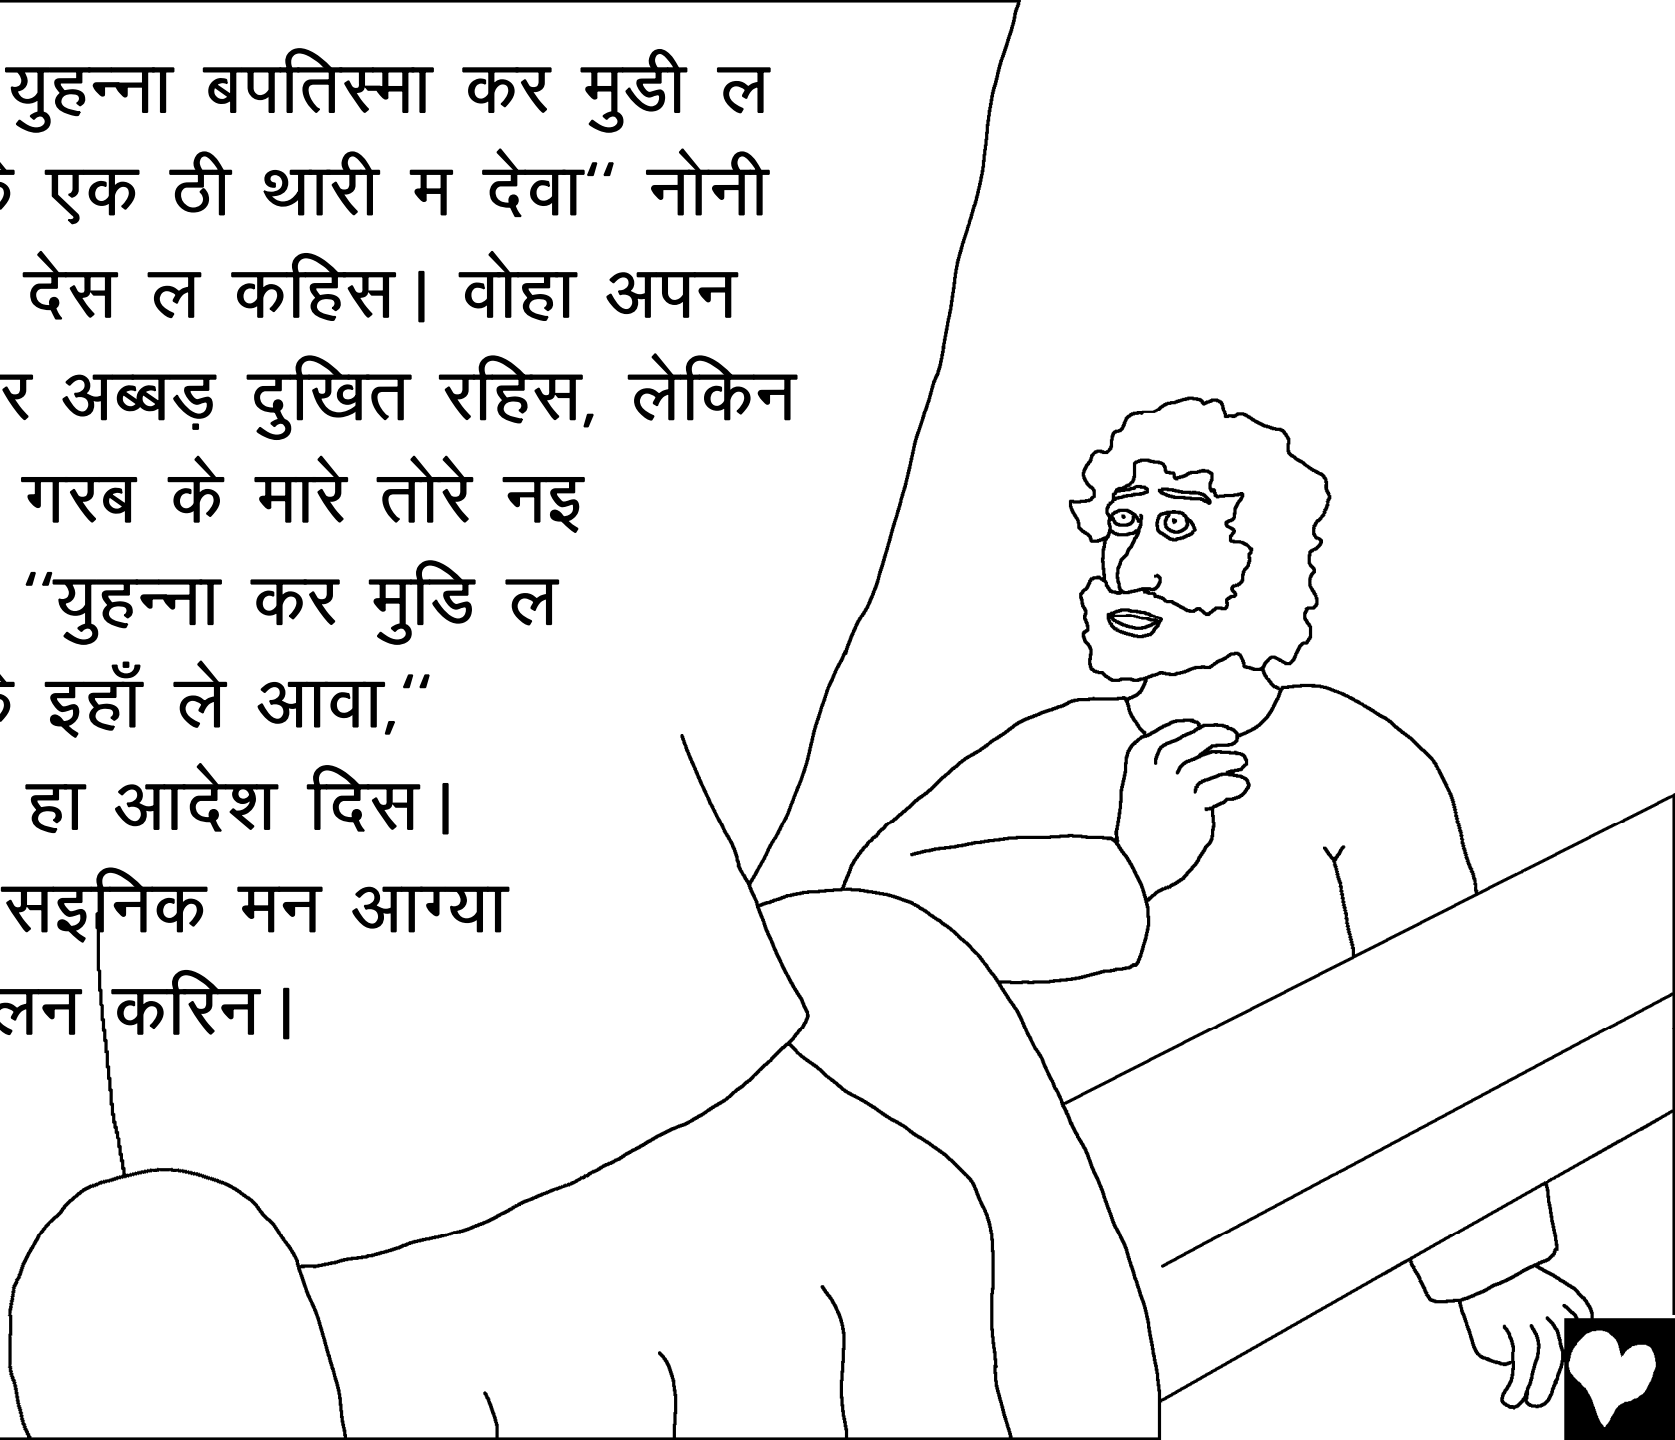 युहन्ना बपतिस्मा कर मुडी ल
एक ठी थारी म देवा“ नोनी
देस ल कहिस। वोहा अपन
अब्बड़ दुखित रहिस, लेकिन
गरब के मारे तोरे नइ
“युहन्ना कर मुडि ल
इहाँ ले आवा,“
हा आदेश दिस।
सइनिक मन आग्या
करिन।